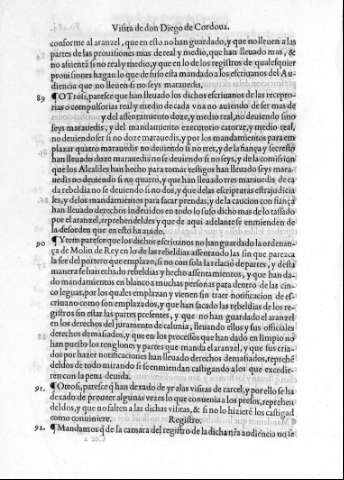 Visita de don Diego de Cordoua.
conforme al aranzel, que en esto no han guardado, y que no lleuen a las
partes de las prouisiones mas de real y medio, que han lleuado mas, &
no assienta si no real y medio, y que en lo de los registros de qualesquier
prouisiones hagan lo que de suso esta mandado a los escriuanos del Au
diencia que no lleuen si no seys marauedis,
89 ¶ OTrosi, paresce que han lleuado los dichos escriuanos de las recepto-
rias o compulsorias real y medio de cada vna no auiendo de ser mas de
y del assentamiento doze, y medio real, no deuiendo sino
seys marauedis, y del mandamiento executorio catorze, y medio real,
no deuiendo ser si no doze marauedis, y por los mandamientos para em
plazar quatro marauedis no deuiendo si no tres, y de la fiança y secresto
han lleuado doze marauedis no se deuiendo si no seys, y de la comision
que los Alcaldes han hecho para tomar testigos han lleuado seys maraue
dis no deuiendo si no quatro, y que han lleuado tres marauedis de ca
da rebeldia no se deuiendo si no dos, y que delas escripturas estrajudicia
les, y delos mandamientos para sacar prendas, y de la caucion con fiança
han lleuado derechos indeuidos en todo lo suso dicho mas delo tassado
por el aranzel, reprehendeldes y que de aqui adelante se enmienden de
la desorden que en esto ha auido.
90 ¶ Ytem paresce que los dichos escriuanos no han guardado la ordenan
ça de Molin de Rey en lo de las rebeldias assentando las sin que parezca
la fee del portero que emplazo, si no con sola la relacio de partes, y desta
manera se han echado rebeldias y hecho assentamientos, y que han da-
do mandamientos en blanco a muchas personas para dentro de las cin-
co leguas, por los quales emplazan y vienen sin traer notificacion de es-
criuano como son emplazados, y que han sacado las rebeldias de los re-
gistros sin estar las partes presentes, y que no han guardado el aranzel
en los derechos del juramento de calunia, lleuando ellos y sus officiales
derechos demasiados, y que en los processos que han dado en limpio no
han puesto los renglones y partes que manda el aranzel, y que sus cria-
dos por hazer notificaciones han lleuado derechos demasiados, reprehe
deldos de todo mirando si se enmiendan castigando a los que excedie-
ren con la pena deuida.
91. ¶ Otrosi, paresce q̃ han dexado de yr alas visitas de carcel, y por ello se ha
dexado de proueer algunas vezes lo que conuenia a los presos, reprehen
deldos, y que no falten a las dichas visitas, & si no lo hizieré los castigad
como conuiniere.
Registro.
92. ¶ Mandamos q̃ de la camara del registro de la dicha nr̃a audiencia no se